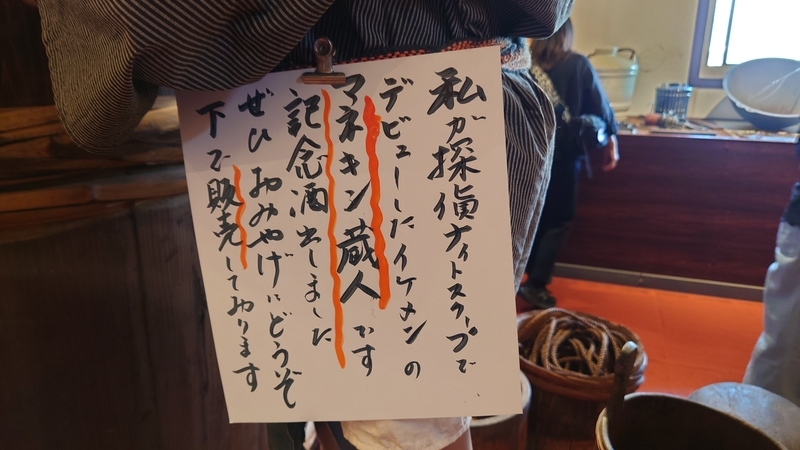 私が探偵ナイトスクープで、
デビューしたイケメンの
マネキン蔵人です
記念酒出しました
ぜひおみやげにどうぞ
下で販売しております